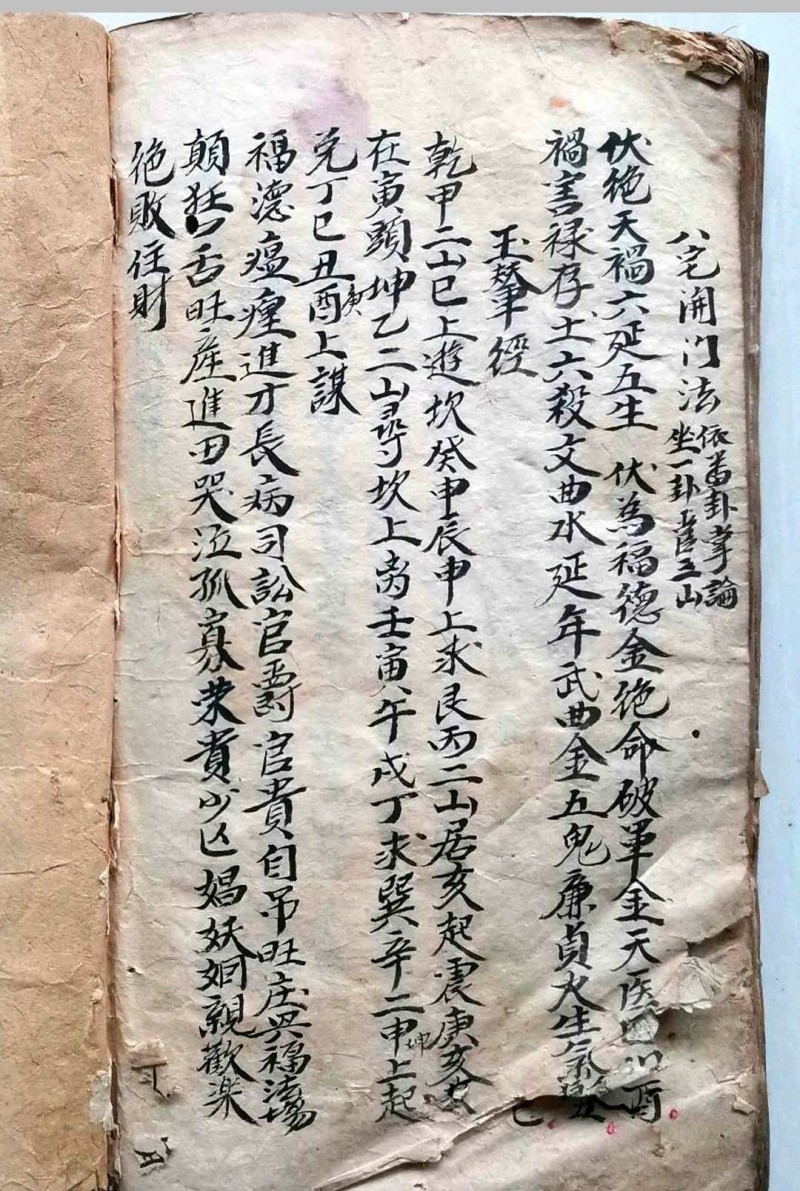 八宅開门法
依番卦掌論
坐一卦管三山
伏絶天禍六延五生　伏為福德金絶命破軍金天医
禍害禄存土六殺文曲水延年武曲金五鬼廉貞火生氣
玉輦經
乾甲二山巳上遊坎癸申辰申上求艮丙二山居亥起震庚亥
在寅頭坤乙二山尋坎上离壬寅午戌丁求巽辛二申坤上起
兑丁巳丑酉庚上謀
福德瘟瘟進才長病司訟官爵官貴自吊旺庄兴福法塲
顛狂口舌旺產進田哭泣孤寡荣貴少亡娼妖姻親歡楽
絶敗任財